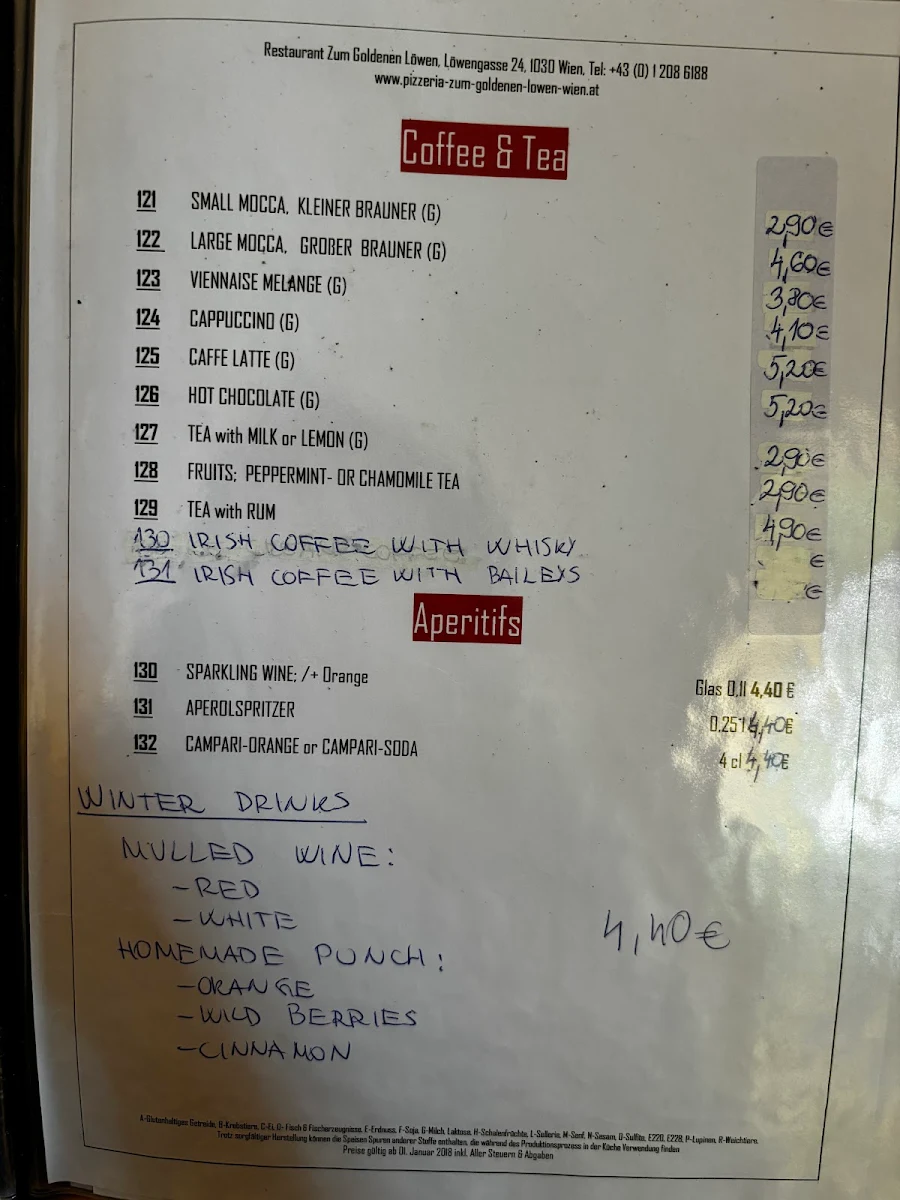 Restaurant Zum Goldenen Löwen, Löwengasse 24, 1030 Wien, Tel: +43 (0) 1 208 6188
www.pizzeria-zum-goldenen-lowen-wien.at
Coffee & Tea
121 SMALL MOCCA, KLEINER BRAUNER (G) 2,90€
122 LARGE MOCCA, GROßER BRAUNER (G) 4,60€
123 VIENNAISE MELANGE (G) 3,80€
124 CAPPUCCINO (G) 4,10€
125 CAFFE LATTE (G) 5,20€
126 HOT CHOCOLATE (G) 5,20€
127 TEA with MILK or LEMON (G) 2,90€
128 FRUITS; PEPPERMINT- OR CHAMOMILE TEA 2,90€
129 TEA with RUM 4,90€
130 IRISH COFFEE WITH WHISKY €
131 IRISH COFFEE WITH BAILEYS €
Aperitifs
130 SPARKLING WINE; /+ Orange Glas 0,1l 4,40 €
131 APEROLSPRITZER 0,25l 4,40€
132 CAMPARI-ORANGE or CAMPARI-SODA 4 cl 4,40€
WINTER DRINKS
MULLED WINE:
-RED
-WHITE
4,40€
HOMEMADE PUNCH:
-ORANGE
-WILD BERRIES
-CINNAMON
A-Glutenhaltiges Getreide, B-Krebstiere, C-Ei, D- Fisch & Fischerzeugnisse, E-Erdnuss, F-Soja, G-Milch, Laktose, H-Schalenfrüchte, L-Sellerie, M-Senf, N-Sesam, O-Sulfite, E220, E228, P-Lupinen, R-Weichtiere.
Trotz sorgfältiger Herstellung können die Speisen Spuren anderer Stoffe enthalten, die während des Produktionsprozess in der Küche Verwendung finden
Preise gültig ab 01. Januar 2018 inkl. Aller Steuern & Abgaben